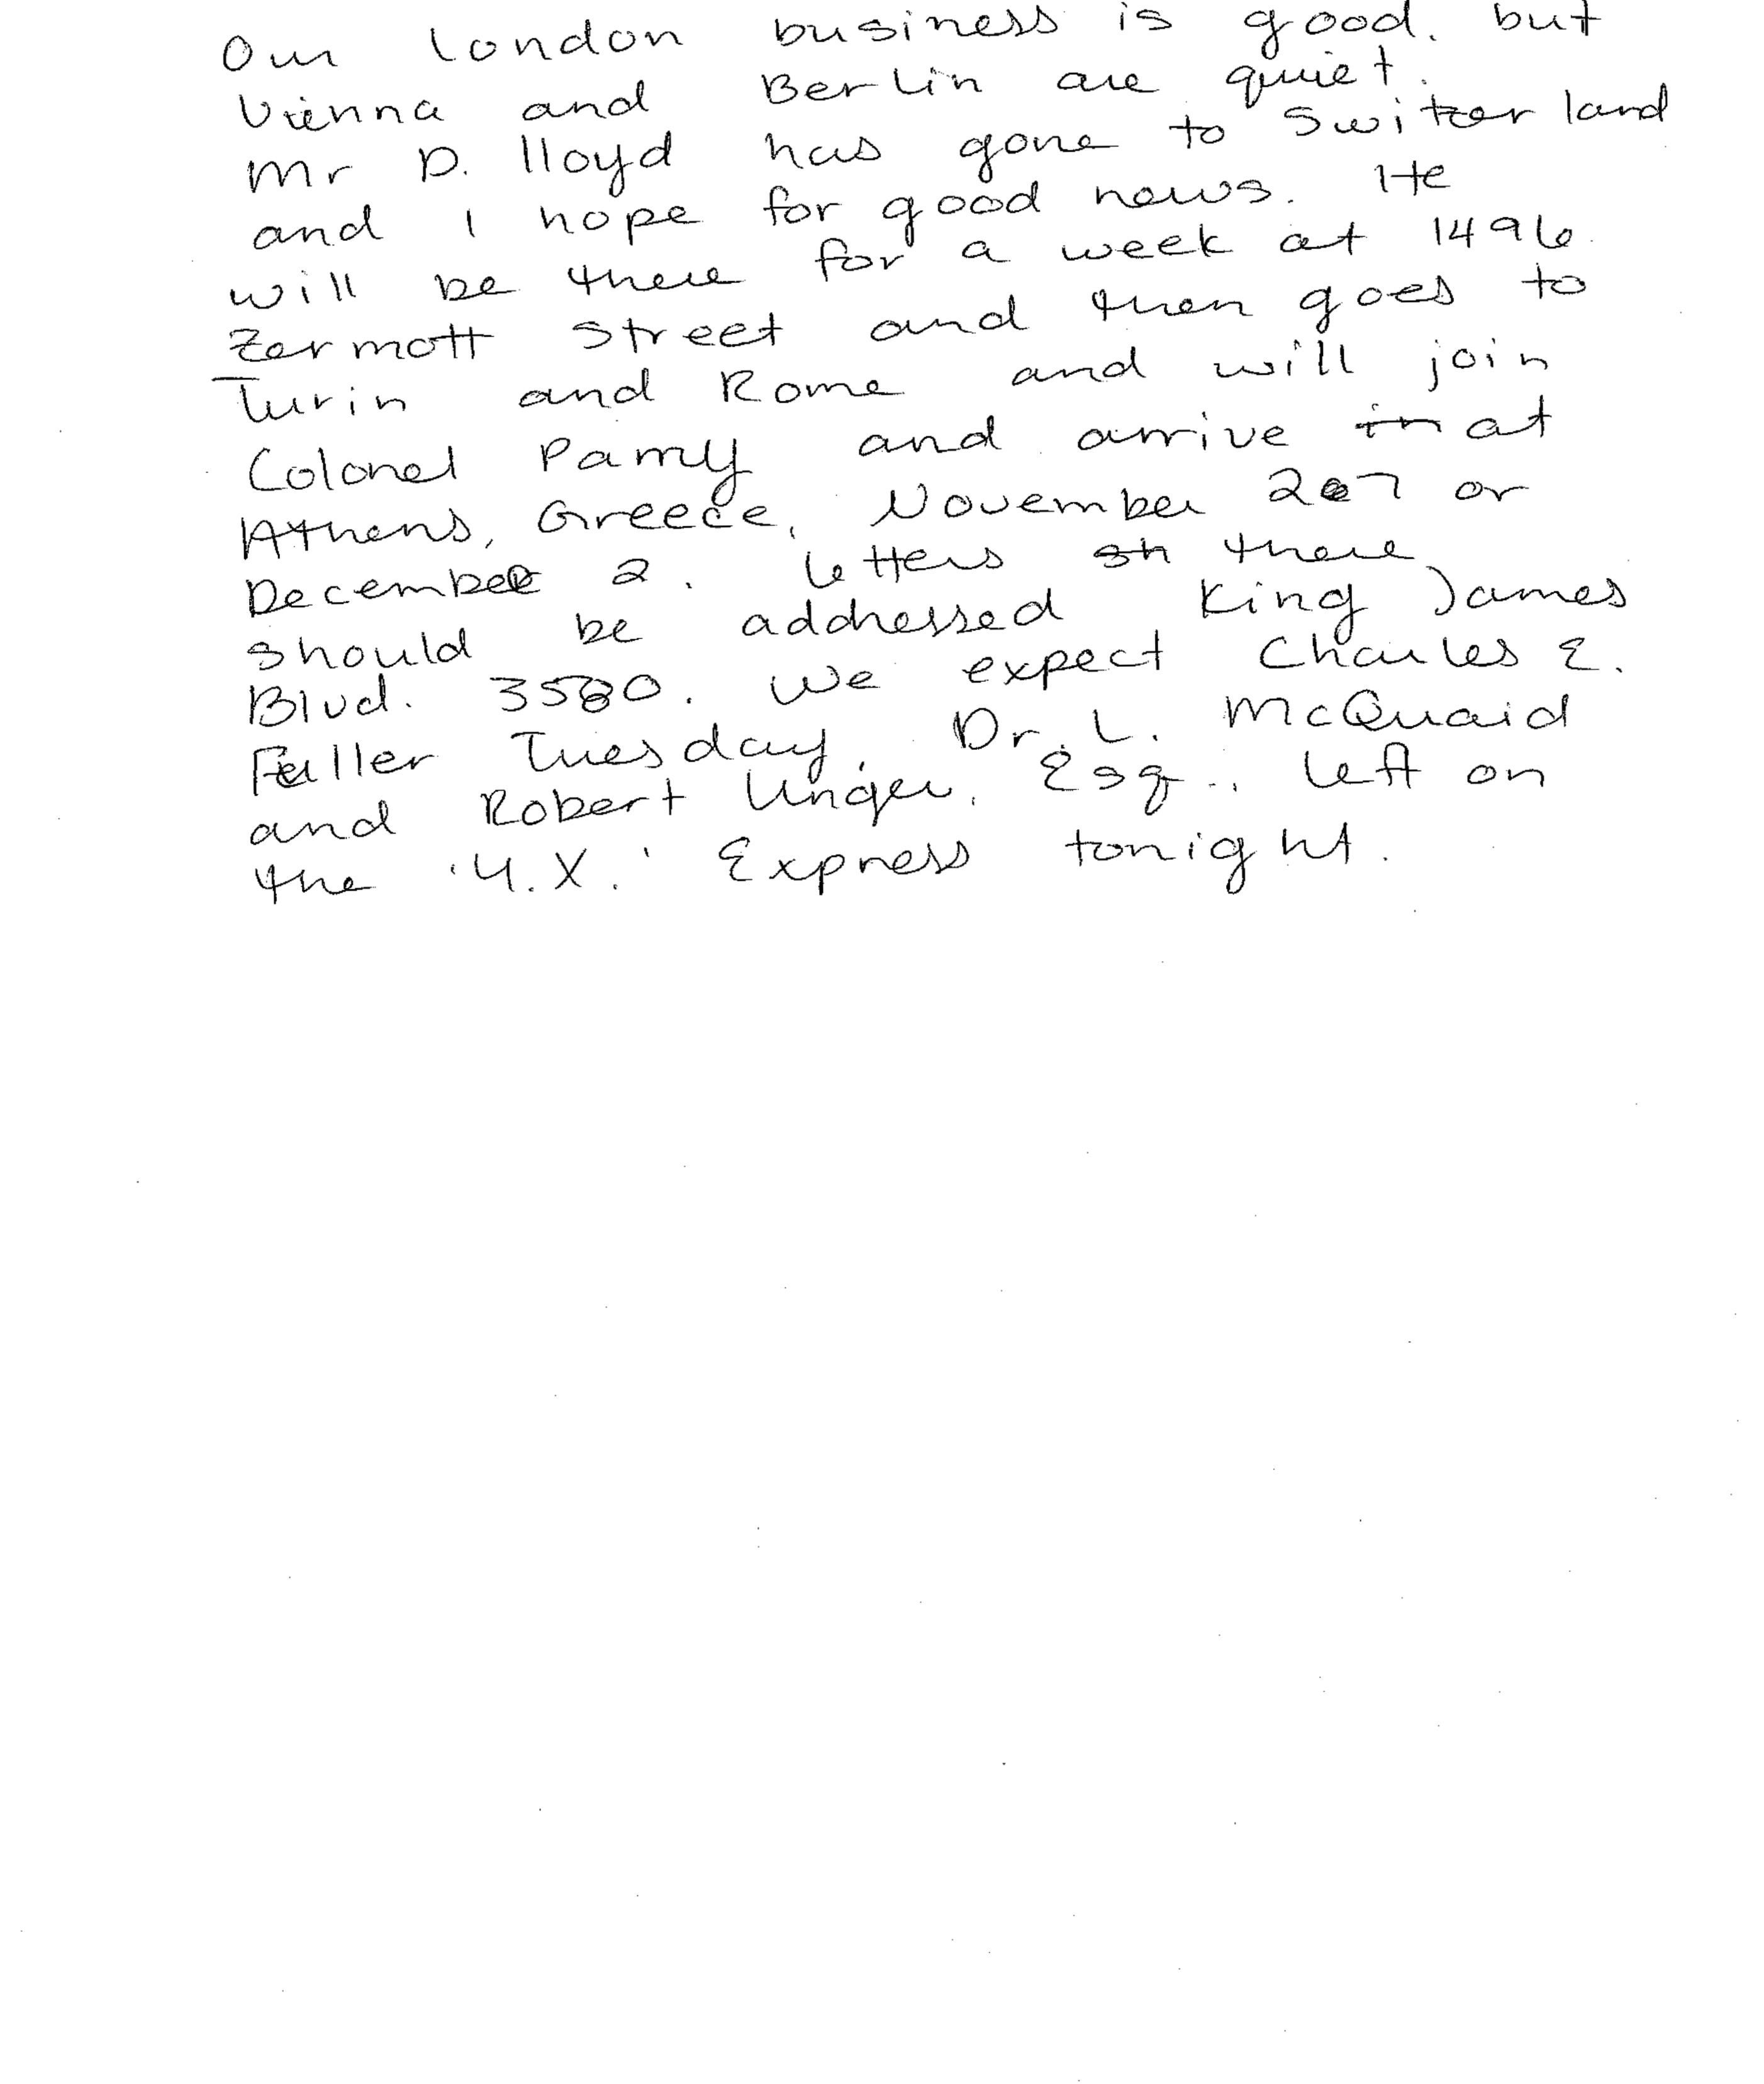 Our London business is good, but
Vienna and Berlin are quiet.
Mr D. Lloyd has gone to Switzerland
and I hope for good news. He
will be there for a week at 1496
Zermott Street and then goes to
Turin and Rome and will join
Colonel Parry and arrive in at
Athens, Greece, November 27 or
December 2. Letters sh there
should be addressed King James
Blvd. 3580. We expect Charles E.
Fuller Tuesday. Dr. L. McQuaid
and Robert Unger, Esq., left on
the 'Y.X.' Express tonight.